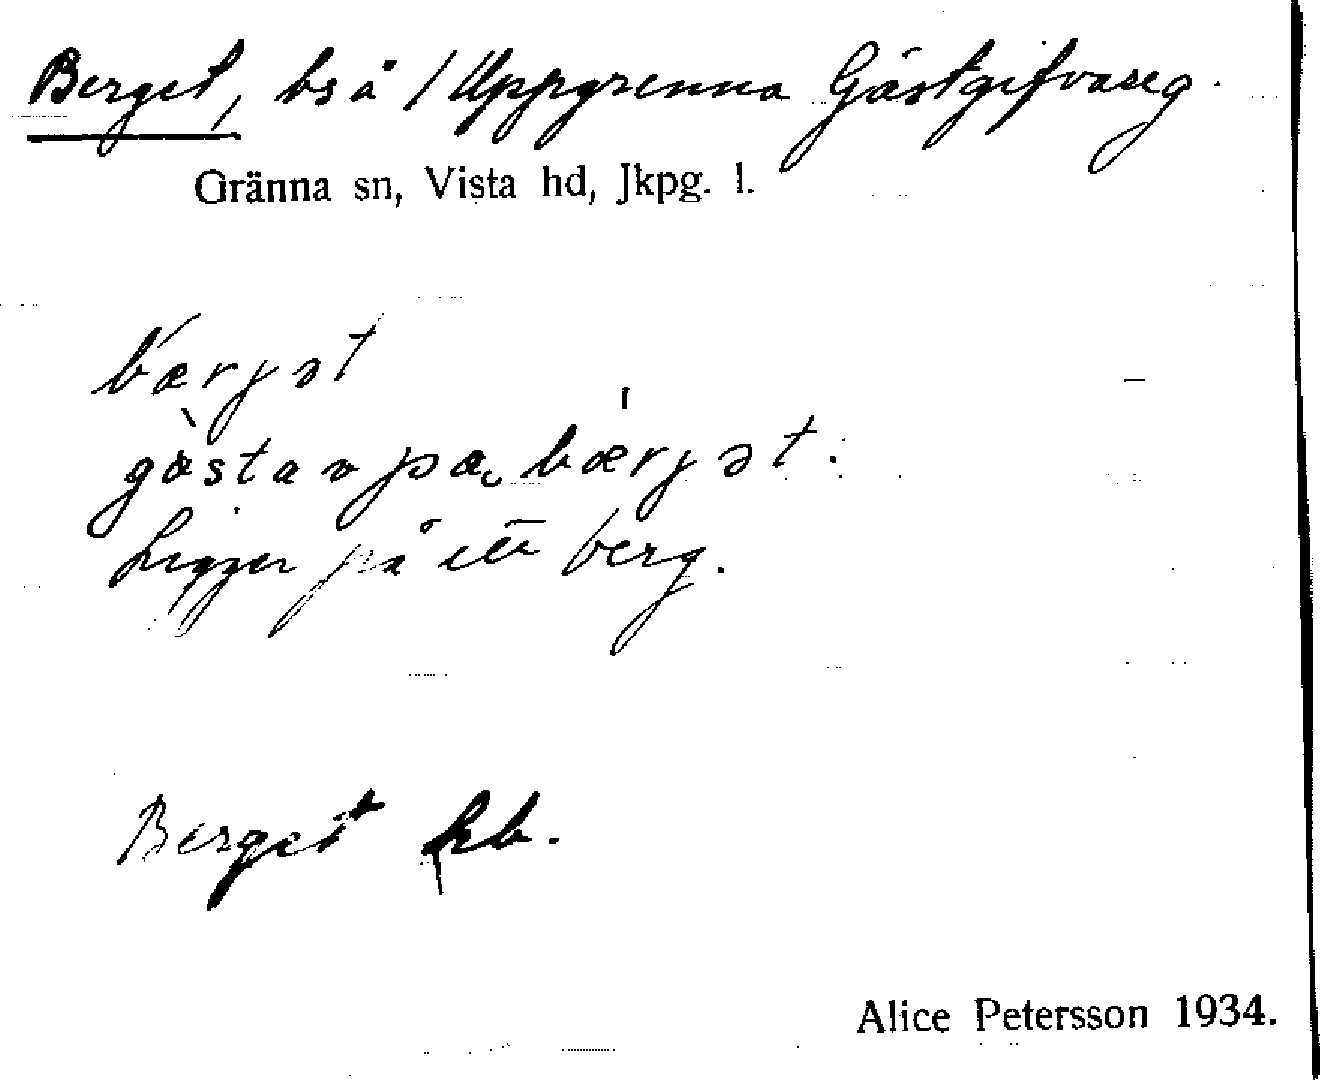 Berget, bs å / Uppgrenna Gästgifvareg.
Gränna sn, Vista hd, Jkpg. l.
bærjət
gàstav pα bærjət.
Ligger på ett berg.
Berget
Alice Petersson 1934.